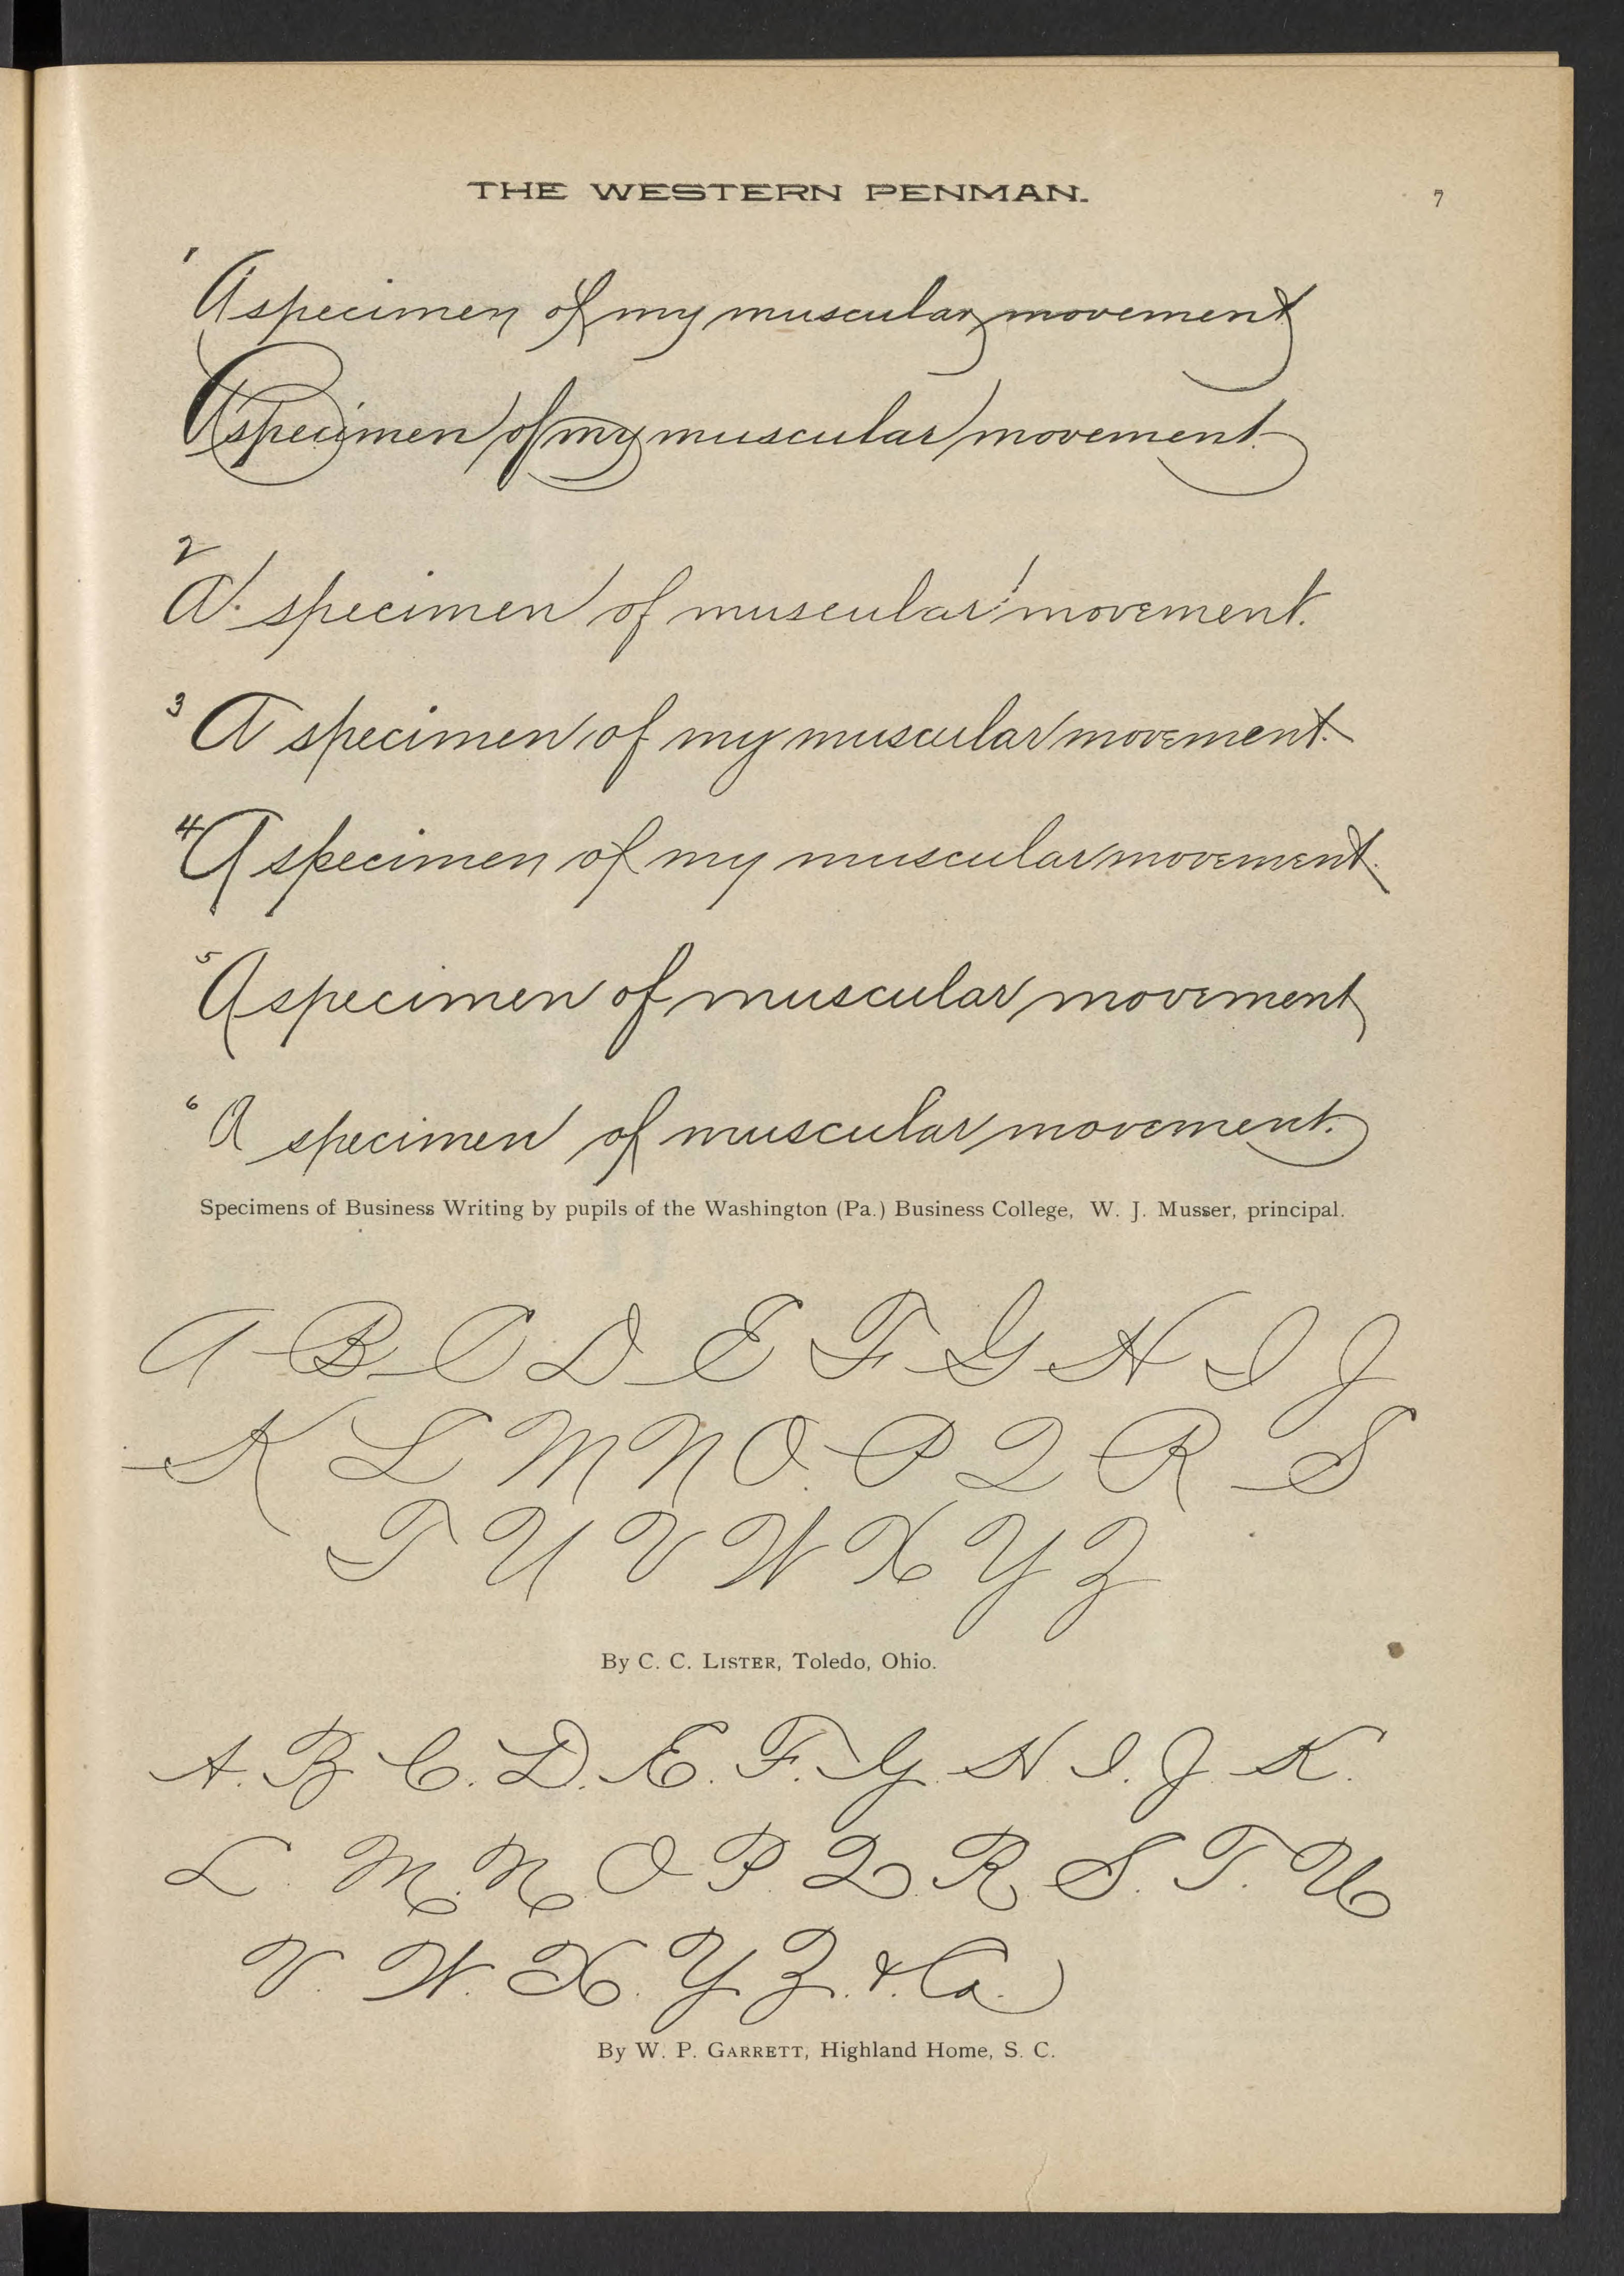 THE WESTERN PENMAN.
7
1
A specimen of my muscular movement
A specimen of my muscular movement.
2
A. specimen of muscular movement.
3 A specimen of my muscular movement.
4 A specimen of my muscular movement.
5 A specimen of muscular movement
6 A specimen of muscular movement.
Specimens of Business Writing by pupils of the Washington (Pa.) Business College, W. J. Musser, principal.
A B C D E F G H I J
K L M N O. P Q R S
T U V W X Y Z
By C. C. LISTER, Toledo, Ohio.
A. B C. D. E. F. G. H. I. J. K.
L. M. N. O P. Q. R. S. T. U
V. W. X. Y Z. &. Co.
By W. P. GARRETT, Highland Home, S. C.